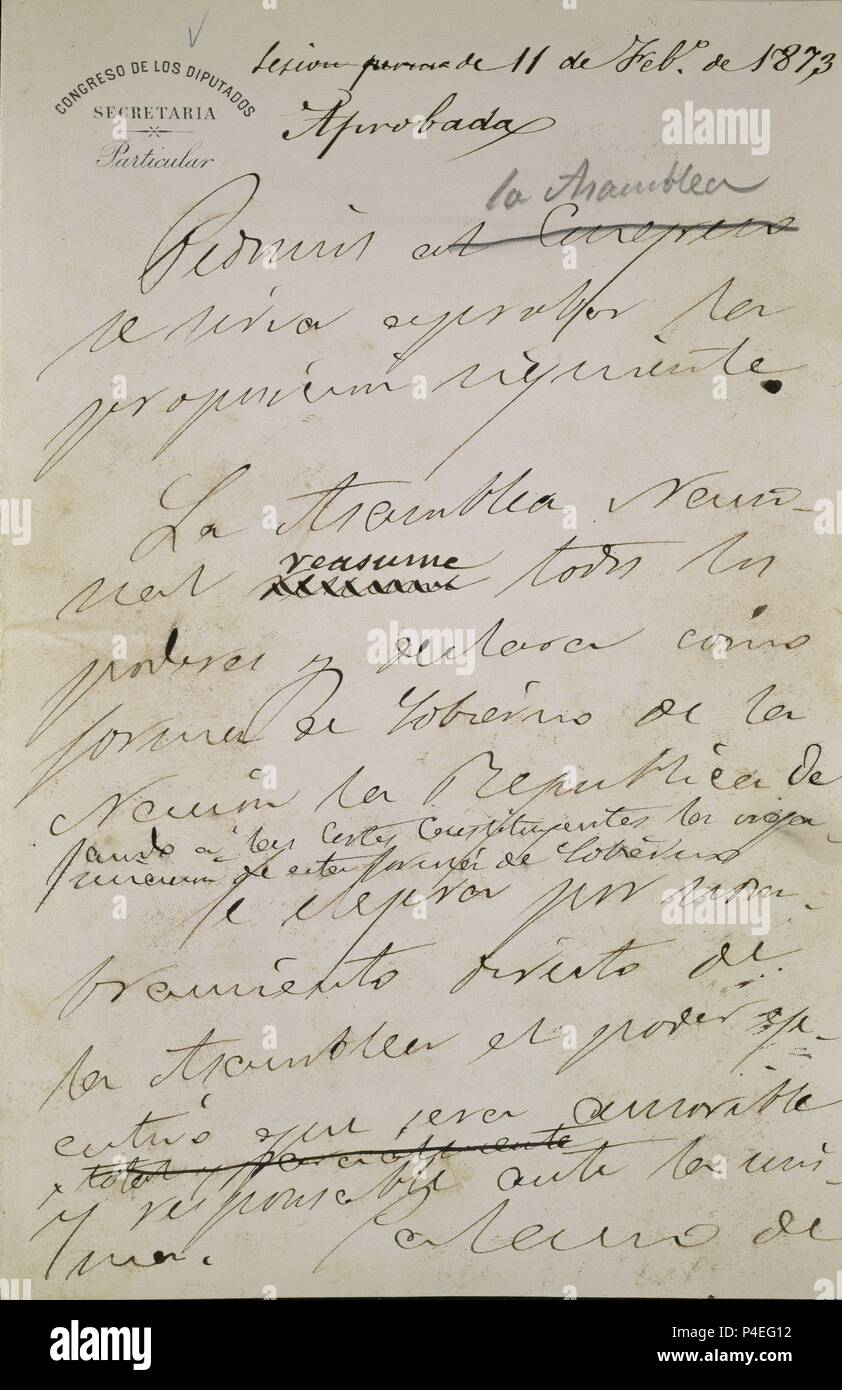 CONGRESO DE LOS DIPUTADOS
SECRETARIA
Particular
Sesion de 11 de Feb.º de 1873
Aprobada
la Asamblea
Pedimos al Congreso
se sirva aprobar la
proposición siguiente.
La Asamblea Nacio-
nal reasume todos los
poderes y declara como
forma de Gobierno de la
Nación la Republica de
jando á las Cortes Constituyentes la orga-
nizacion de esta forma de Gobierno
Se elegira por nom-
bramiento directo de
la Asamblea el poder eje-
cutivo que sera amovible
total y parcialmente
y responsable ante la mis-
ma. Palacio de
alamy
Image ID: P4EG12
www.alamy.com